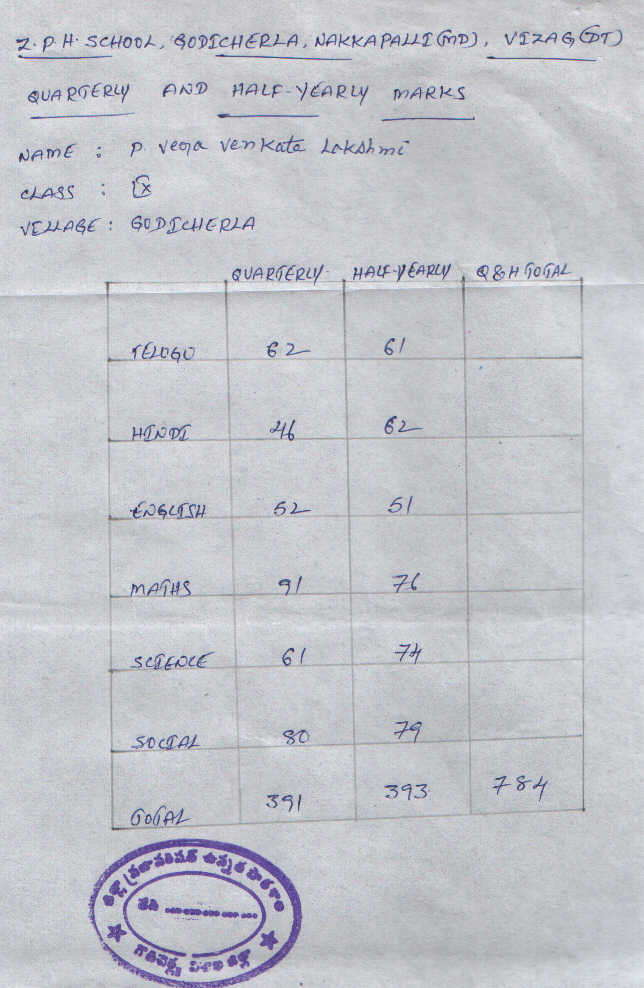 Z.P.H. SCHOOL, GODICHERLA, NAKKAPALLI (MD), VIZAG (DT)
QUARTERLY AND HALF-YEARLY MARKS
NAME : P. Veera Venkata Lakshmi
CLASS : IX
VILLAGE : GODICHERLA
QUARTERLY HALF-YEARLY Q&H TOTAL
TELUGU 62 61
HINDI 46 62
ENGLISH 52 51
MATHS 91 76
SCIENCE 61 74
SOCIAL 80 79
TOTAL 391 393 784
జిల్లా ప్రజాపరిషత్ ఉన్నత పాఠశాల
తేది
గొడిచెర్ల విశాఖ జిల్లా